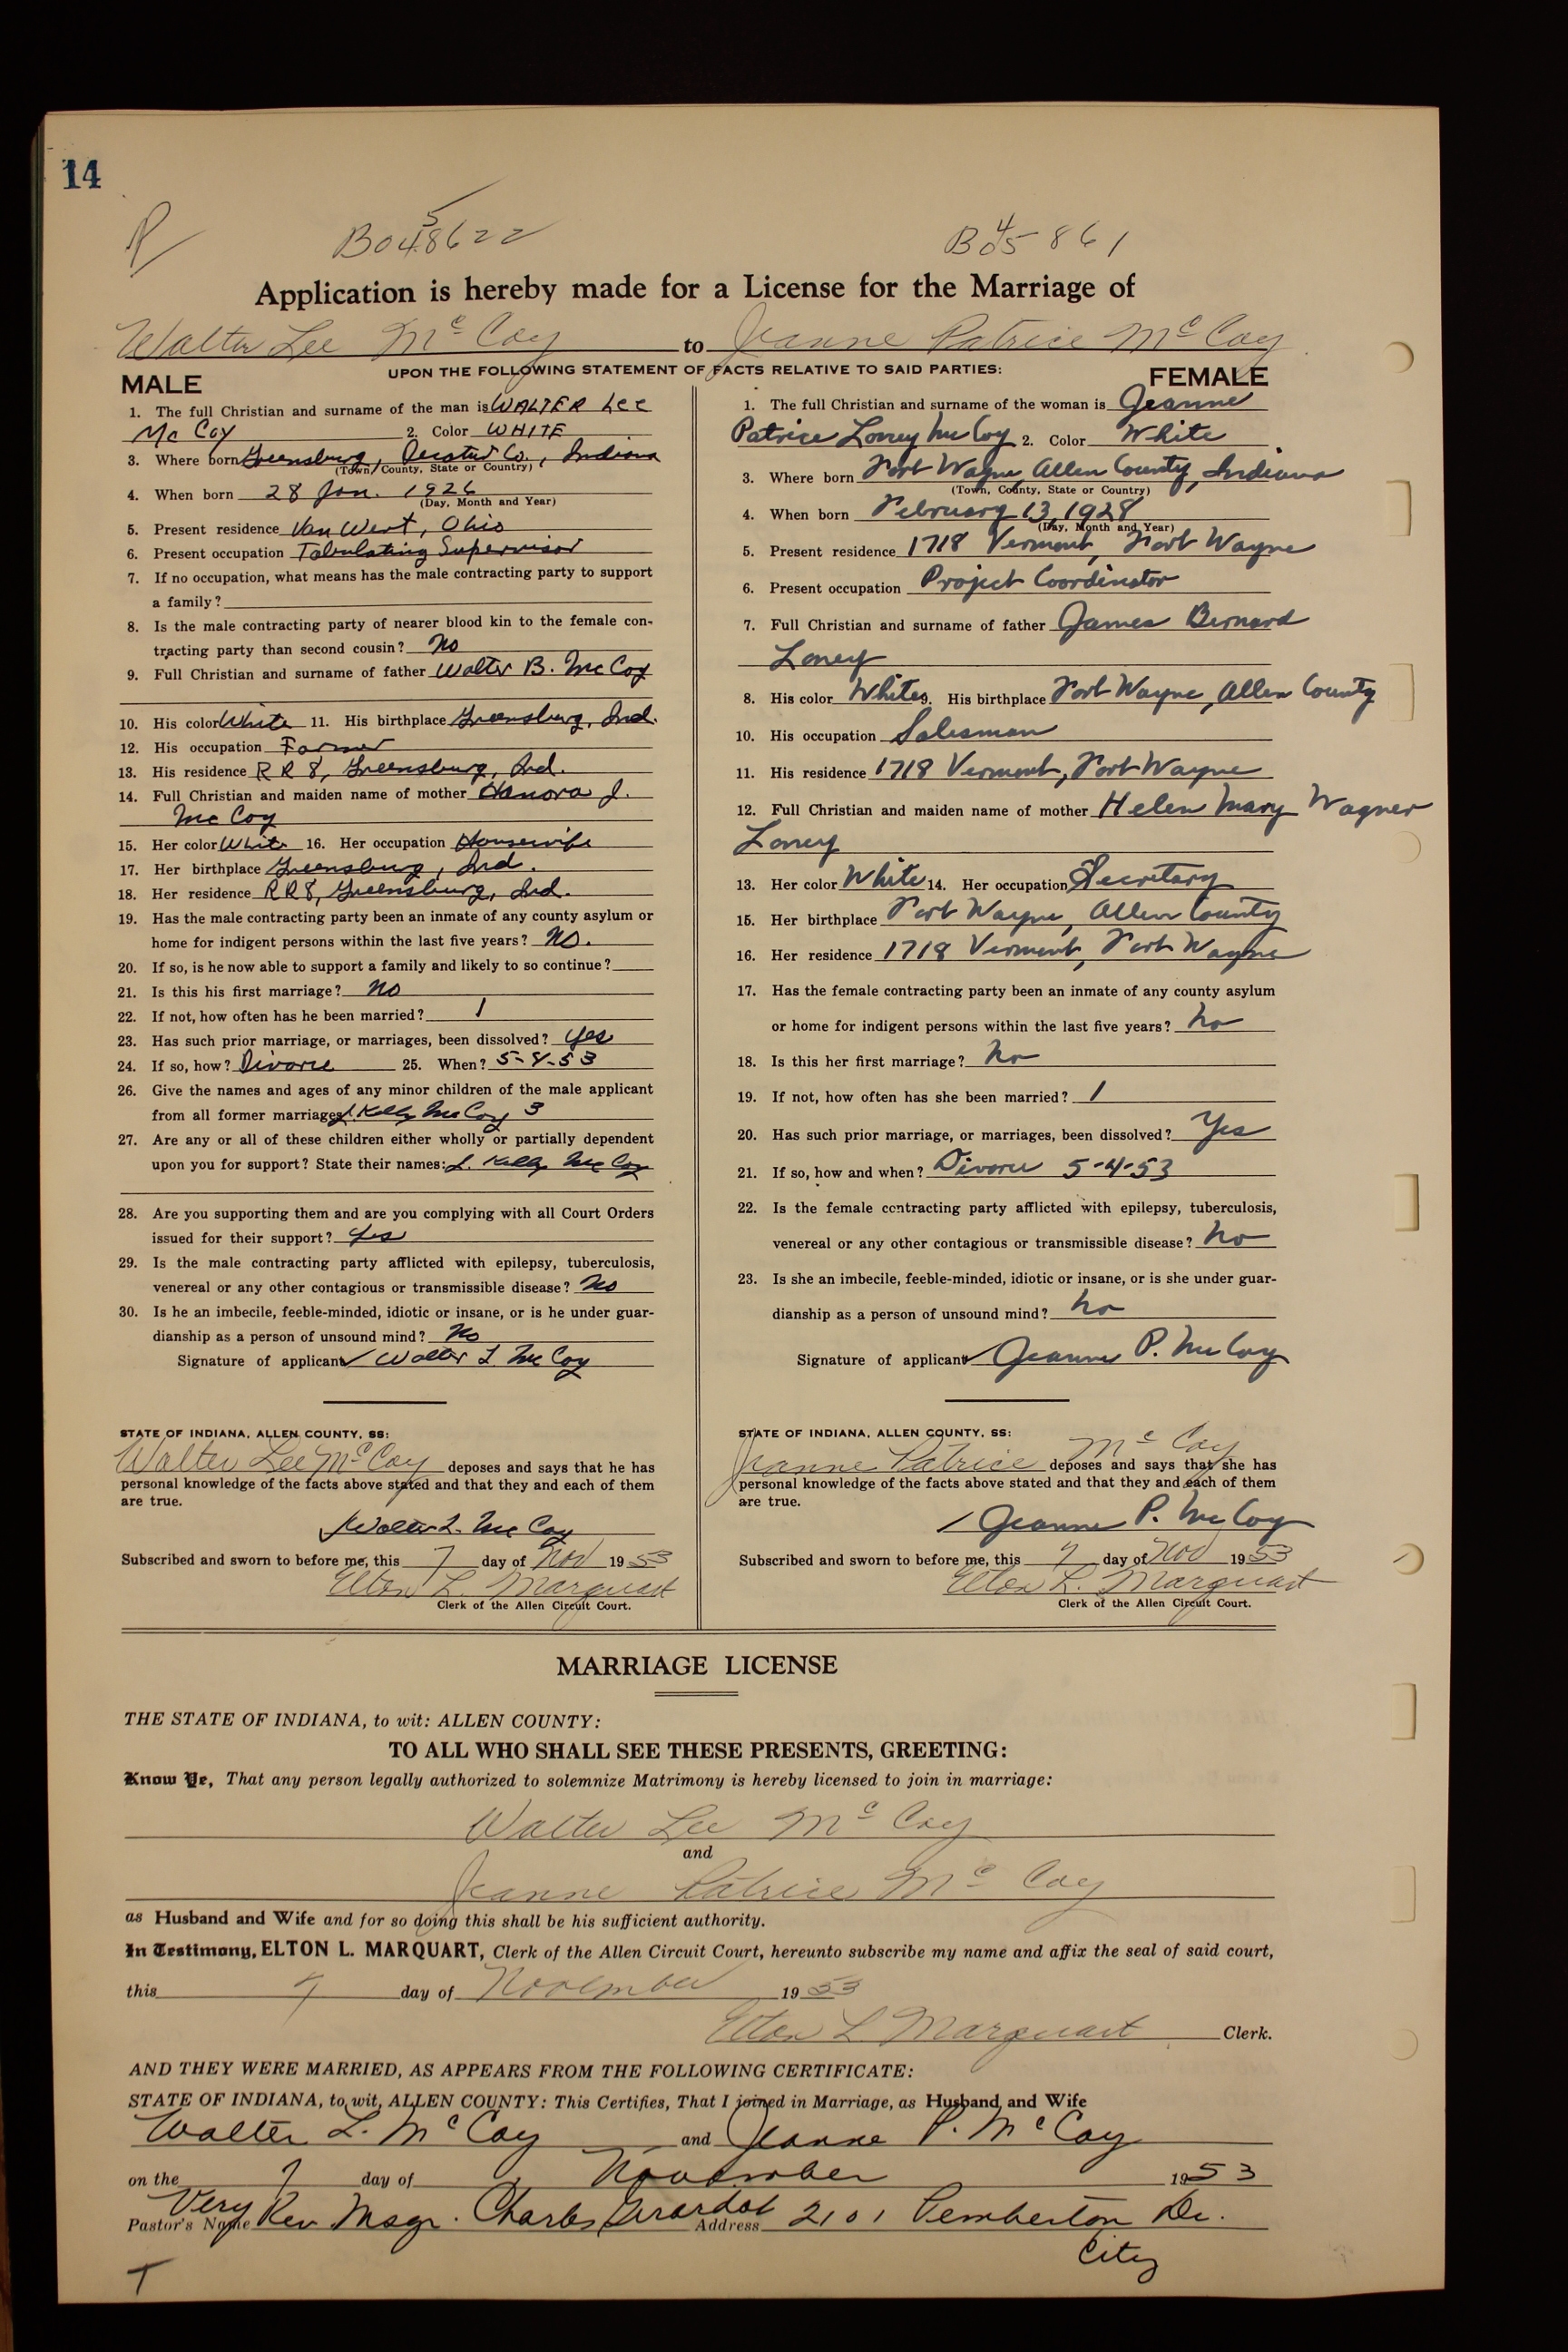 14
R
B048622 5
B005861 4
Application is hereby made for a License for the Marriage of
Walter Lee McCoy to Jeanne Patrice McCoy
UPON THE FOLLOWING STATEMENT OF FACTS RELATIVE TO SAID PARTIES:
MALE
1. The full Christian and surname of the man is WALTER Lee
McCoy 2. Color WHITE
3. Where born Greensburg, Decatur Co., Indiana
(Town, County, State or Country)
4. When born 28 Jan. 1926
(Day, Month and Year)
5. Present residence Van Wert, Ohio
6. Present occupation Tabulating Supervisor
7. If no occupation, what means has the male contracting party to support
a family?
8. Is the male contracting party of nearer blood kin to the female con-
tracting party than second cousin? No
9. Full Christian and surname of father Walter B. McCoy
10. His color White 11. His birthplace Greensburg, Ind.
12. His occupation Farmer
13. His residence RR 8, Greensburg, Ind.
14. Full Christian and maiden name of mother Hanora J.
McCoy
15. Her color White 16. Her occupation Housewife
17. Her birthplace Greensburg, Ind.
18. Her residence RR8, Greensburg, Ind.
19. Has the male contracting party been an inmate of any county asylum or
home for indigent persons within the last five years? No.
20. If so, is he now able to support a family and likely to so continue?
21. Is this his first marriage? No
22. If not, how often has he been married? 1
23. Has such prior marriage, or marriages, been dissolved? yes
24. If so, how? Divorce 25. When? 5-4-53
26. Give the names and ages of any minor children of the male applicant
from all former marriages L. Kelly McCoy 3
27. Are any or all of these children either wholly or partially dependent
upon you for support? State their names: L. Kelly McCoy
28. Are you supporting them and are you complying with all Court Orders
issued for their support? yes
29. Is the male contracting party afflicted with epilepsy, tuberculosis,
venereal or any other contagious or transmissible disease? No
30. Is he an imbecile, feeble-minded, idiotic or insane, or is he under guar-
dianship as a person of unsound mind? No
Signature of applicant Walter L McCoy
STATE OF INDIANA, ALLEN COUNTY, SS:
Walter Lee McCoy deposes and says that he has
personal knowledge of the facts above stated and that they and each of them
are true.
Walter L. McCoy
Subscribed and sworn to before me, this 7 day of Nov 1953
Elton L. Marquart
Clerk of the Allen Circuit Court.
FEMALE
1. The full Christian and surname of the woman is Jeanne
Patrice Loney McCoy 2. Color White
3. Where born Fort Wayne, Allen County, Indiana
(Town, County, State or Country)
4. When born February 13, 1928
(Day, Month and Year)
5. Present residence 1718 Vermont, Fort Wayne
6. Present occupation Project Coordinator
7. Full Christian and surname of father James Bernard
Loney
8. His color White 9. His birthplace Fort Wayne, Allen County
10. His occupation Salesman
11. His residence 1718 Vermont, Fort Wayne
12. Full Christian and maiden name of mother Helen Mary Wagner
Loney
13. Her color White 14. Her occupation Secretary
15. Her birthplace Fort Wayne, Allen County
16. Her residence 1718 Vermont, Fort Wayne
17. Has the female contracting party been an inmate of any county asylum
or home for indigent persons within the last five years? no
18. Is this her first marriage? no
19. If not, how often has she been married? 1
20. Has such prior marriage, or marriages, been dissolved? Yes
21. If so, how and when? Divorce 5-4-53
22. Is the female contracting party afflicted with epilepsy, tuberculosis,
venereal or any other contagious or transmissible disease? no
23. Is she an imbecile, feeble-minded, idiotic or insane, or is she under guar-
dianship as a person of unsound mind? no
Signature of applicant Jeanne P. McCoy
STATE OF INDIANA, ALLEN COUNTY, SS:
Jeanne Patrice McCoy deposes and says that she has
personal knowledge of the facts above stated and that they and each of them
are true.
Jeanne P. McCoy
Subscribed and sworn to before me, this 7 day of Nov 1953
Elton L. Marquart
Clerk of the Allen Circuit Court.
MARRIAGE LICENSE
THE STATE OF INDIANA, to wit: ALLEN COUNTY:
TO ALL WHO SHALL SEE THESE PRESENTS, GREETING:
Know Ye, That any person legally authorized to solemnize Matrimony is hereby licensed to join in marriage:
Walter Lee McCoy
and
Jeanne Patrice McCoy
as Husband and Wife and for so doing this shall be his sufficient authority.
In Testimony, ELTON L. MARQUART, Clerk of the Allen Circuit Court, hereunto subscribe my name and affix the seal of said court,
this 7 day of November 1953
Elton L Marquart Clerk.
AND THEY WERE MARRIED, AS APPEARS FROM THE FOLLOWING CERTIFICATE:
STATE OF INDIANA, to wit, ALLEN COUNTY: This Certifies, That I joined in Marriage, as Husband and Wife
Walter L. McCoy and Jeanne P. McCoy
on the 7 day of November 1953
Pastor's Name Very Rev Msgr. Charles Girardot Address 2101 Pemberton Dr.
City
T